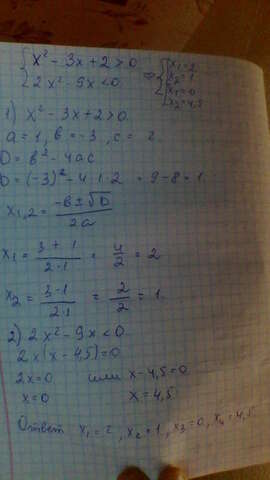 { x² - 3x + 2 > 0
{ 2x² - 9x < 0 ⇒ { x₁ = 2
x₂ = 1
x₁ = 0
x₂ = 4,5
1) x² - 3x + 2 > 0
a = 1, b = -3, c = 2
D = b² - 4ac
D = (-3)² - 4 · 1 · 2 = 9 - 8 = 1
x₁,₂ = (-b ± √D) / 2a
x₁ = (3 + 1) / (2·1) = 4/2 = 2
x₂ = (3 - 1) / (2·1) = 2/2 = 1
2) 2x² - 9x < 0
2x(x - 4,5) = 0
2x = 0 или x - 4,5 = 0
x = 0 x = 4,5
Ответ x₁ = 2, x₂ = 1, x₃ = 0, x₄ = 4,5